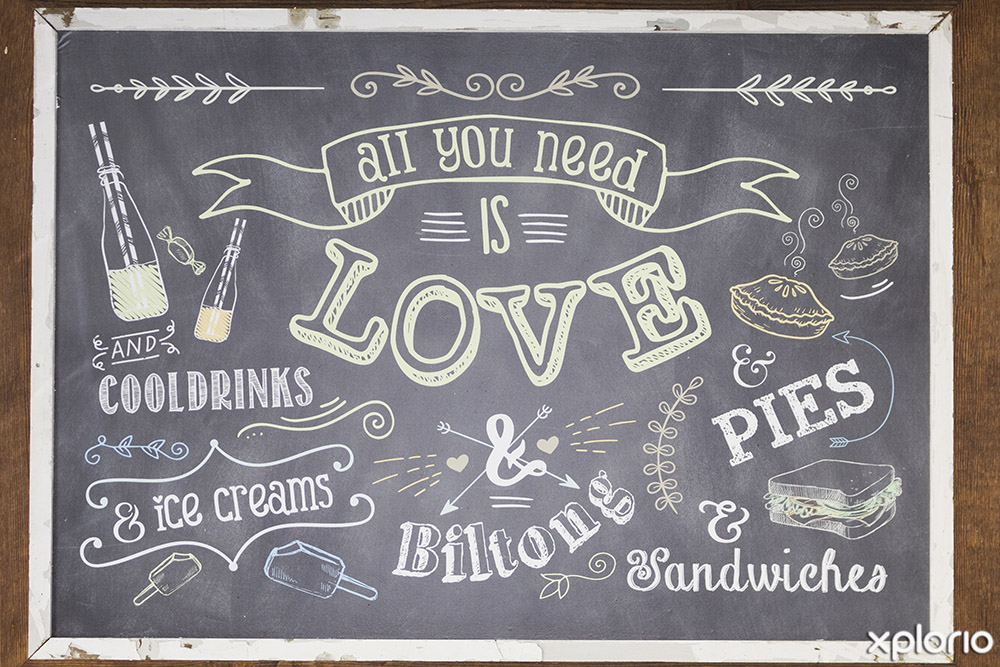 all you need
IS
LOVE
AND
COOLDRINKS
& PIES
& ice creams
& Biltong
& Sandwiches
xplorio